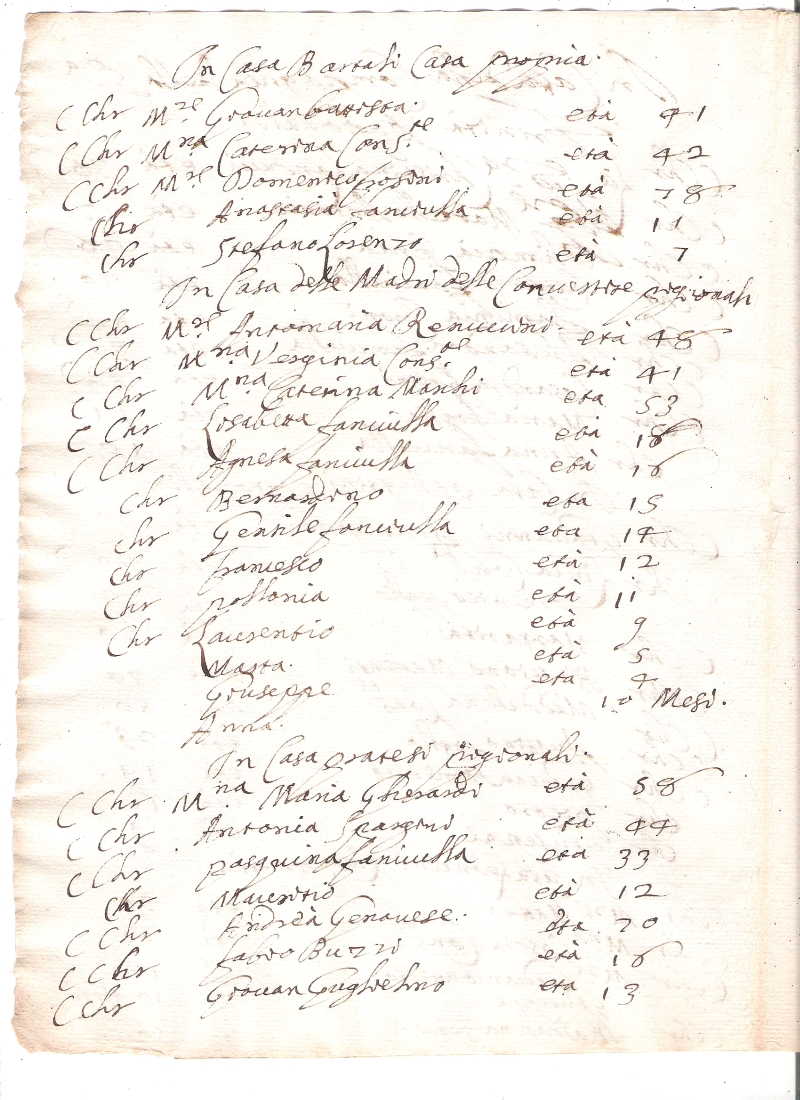 In Casa Bartali Casa propria.
C Chr M.re Giovan Battista. età 41
C Chr M.na Caterina Cons.te età 42
C Chr M.re Domenico Cosini età 78
Chr Anastasia fanciulla età 11
Chr Stefano Lorenzo età 7
In Casa delle Madri delle Convertite pigionali
C Chr M.re Antomaria Renuccini. età 48
C Chr M.na Verginia Cons.te età 41
C Chr M.na Caterina Marchi età 53
C Chr Lisabetta fanciulla età 18
C Chr Agnesa fanciulla età 16
Chr Bernardino età 15
Chr Gentile fanciulla età 14
Chr francesco età 12
Chr pollonia età 11
Chr Laurentio età 9
Marta. età 5
Giuseppe età 4
Anna. 10 Mesi.
In Casa pratesi pigionali.
C Chr M.na Maria Gherardi età 58
C Chr Antonia Spargini età 44
C Chr pasquina fanciulla età 33
Chr Mauritio età 12
C Chr Andrea Genovese. età 20
C Chr fabio Buzzi età 18
C Chr Giovan Guglielmo età 13